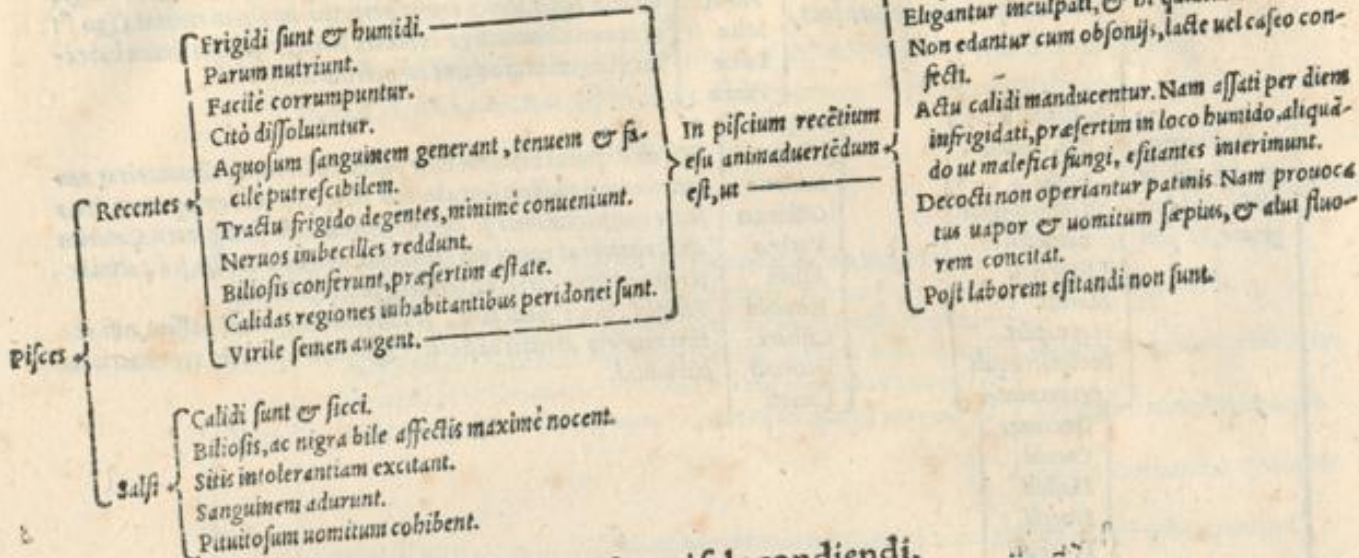 Pisces
Recentes
Frigidi sunt & humidi.
Parum nutriunt.
Facilè corrumpuntur.
Citò dissoluuntur.
Aquosum sanguinem generant, tenuem & fa-
cilè putrescibilem.
Tractu frigido degentes, minimè conueniunt.
Neruos imbecilles reddunt.
Biliosis conferunt, præsertim æstate.
Calidas regiones inhabitantibus peridonei sunt.
Virile semen augent.
In piscium recētium
esu animaduertēdum
est, ut
Eligantur inculpati, &
Non edantur cum obsonijs, lacte uel caseo con-
fecti.
Actu calidi manducentur. Nam assati per diem
infrigidati, præsertim in loco humido, aliquā-
do ut malefici fungi, esitantes interimunt.
Decocti non operiantur patinis. Nam prouoca
tus uapor & uomitum sæpius, & alui fluo-
rem concitat.
Post laborem esitandi non sunt.
Salsi
Calidi sunt & sicci.
Biliosis, ac nigra bile affectis maximè nocent.
Sitis intolerantiam excitant.
Sanguinem adurunt.
Pituitosum uomitum cohibent.
condiendi,